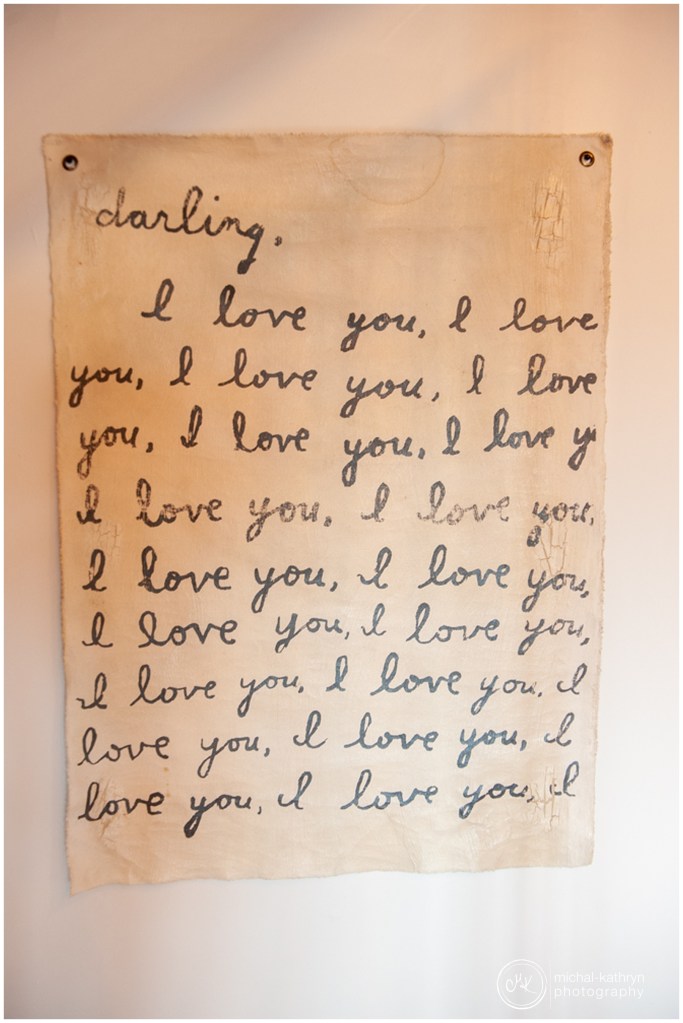 darling,
I love you, I love
you, I love you, I love
you, I love you, I love y
I love you, I love you,
I love you, I love you,
I love you, I love you,
I love you, I love you, I
love you, I love you, I
love you, I love you, I
michal-kathryn
photography